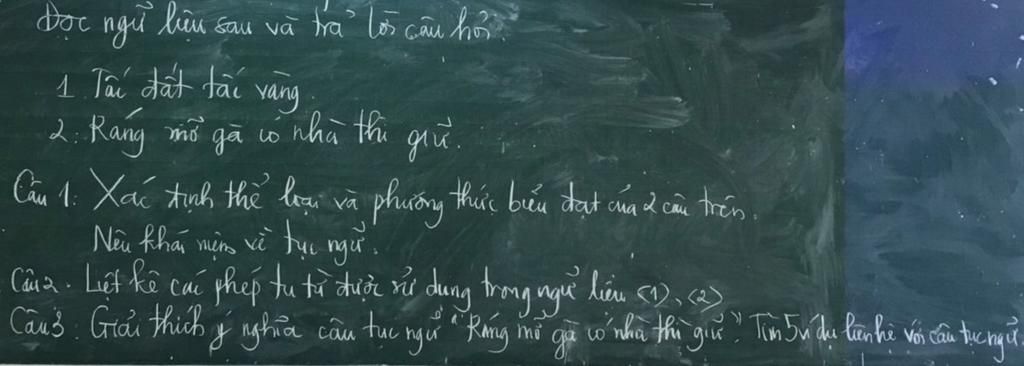 Đọc ngữ liệu sau và trả lời câu hỏi.
1. Tấc đất tấc vàng.
2. Ráng mỡ gà có nhà thì giữ.
Câu 1. Xác định thể loại và phương thức biểu đạt của 2 câu trên.
Nêu khái niệm về tục ngữ.
Câu 2. Liệt kê các phép tu từ được sử dụng trong ngữ liệu (1), (2)
Câu 3. Giải thích ý nghĩa câu tục ngữ "Ráng mỡ gà có nhà thì giữ". Tìm 5 ví dụ liên hệ với câu tục ngữ.